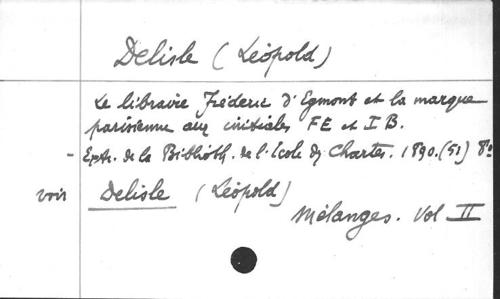 Delisle (Léopold)
Le libraire Fréderic d'Egmont et la marque
parisienne aux initiales FE et I B.
- Extr. de la Biblioth. de l'Ecole des Chartes. 1890. (51) 8°
voir Delisle (Léopold)
Mélanges. Vol II